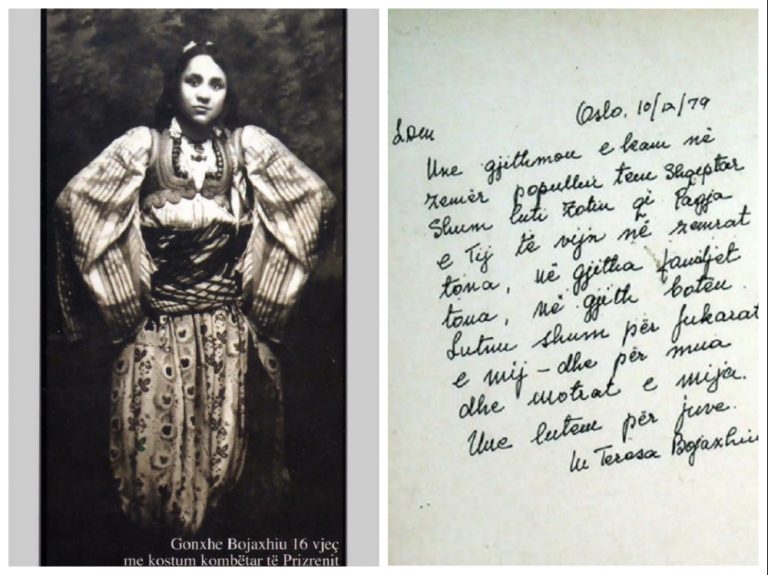 Gonxhe Bojaxhiu 16 vjeç
me kostum kombëtar të Prizrenit
Oslo, 10/12/79
Une gjithmon e kam në
zemër popullin tem Shqeptar
Shum luti Zotin qi Paqja
e Tij të vijn në zemrat
tona, në gjitha familjet
tona, në gjith botën.
Lutem shum për fukarat
e mij – dhe për mua
dhe motrat e mija.
Une lutem për juve.
M Teresa Bojaxhiu